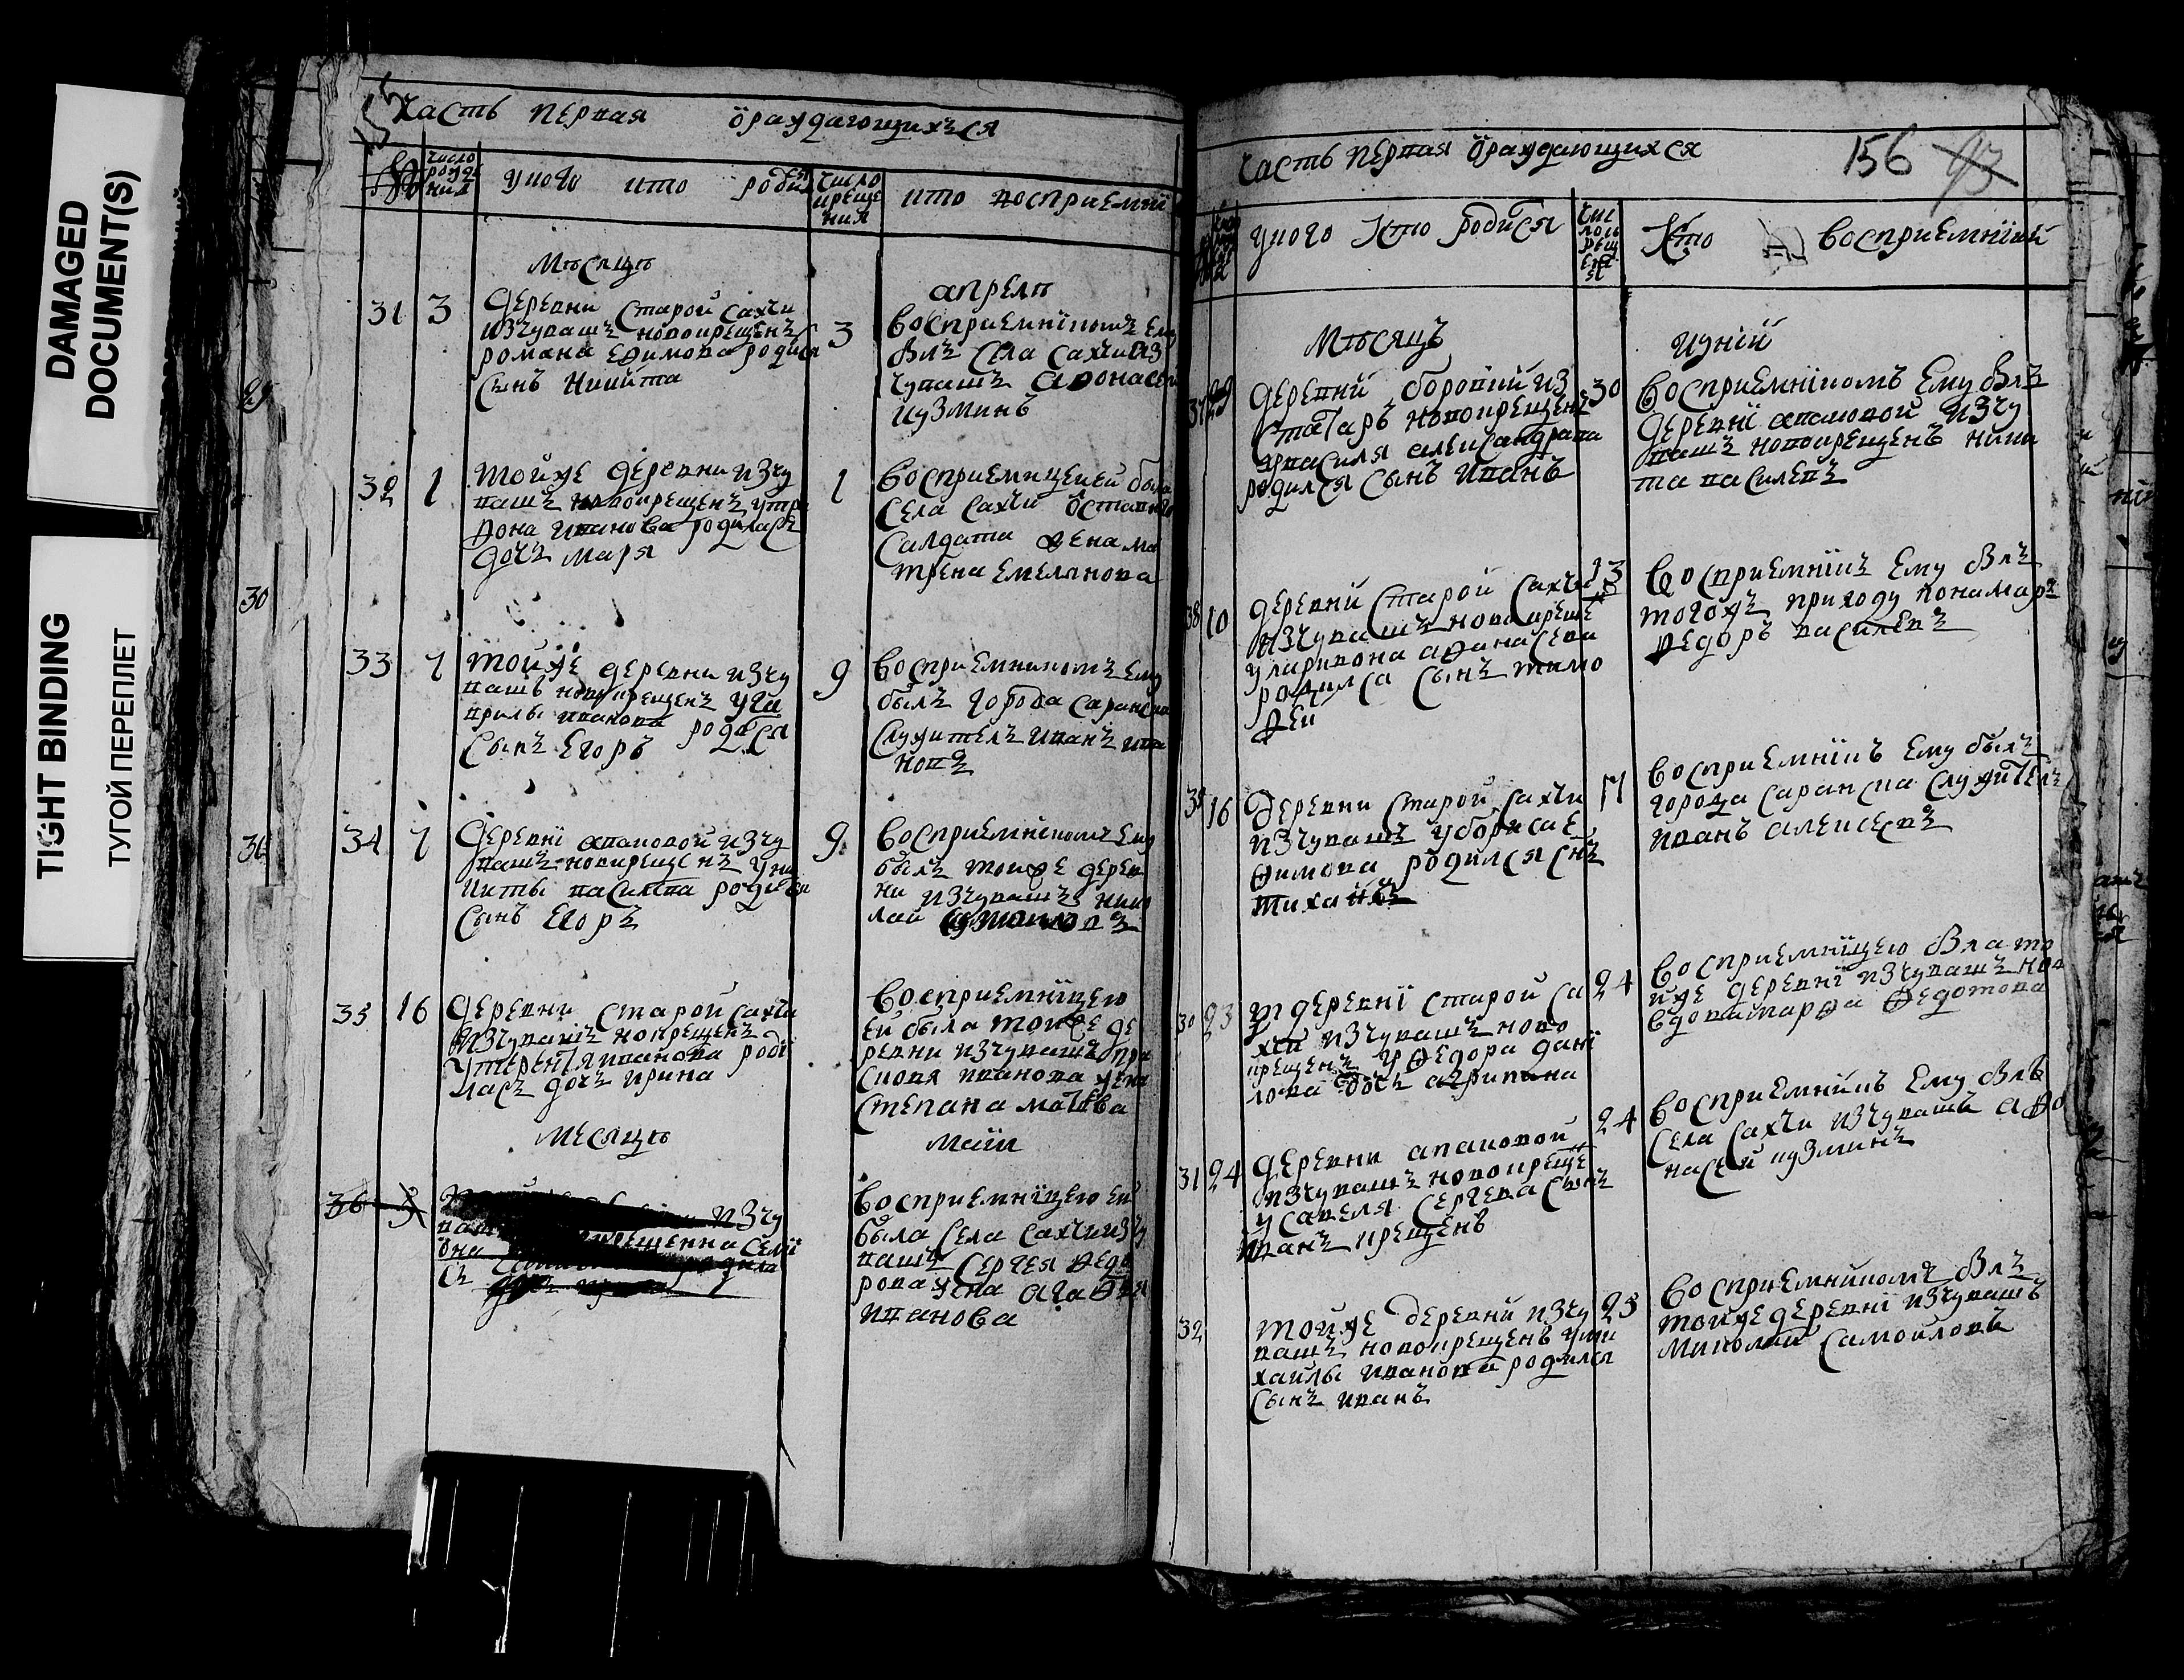 DAMAGED
DOCUMENT(S)
TIGHT BINDING
ТУГОЙ ПЕРЕПЛЕТ
29
30
36
Часть первая ораждающихъся
Число рожде ния
у кого кто родися
Число креще ния
кто восприемни
Мѣсяцъ
апреля
31 3
деревни Старой Сахчи
изчувашъ новокрещенъ
романа ефимова родися
сынъ никита
3
восприемникомъ ему
былъ села сахчи из
чувашъ афонасей
кузминъ
32 1
тойже деревни изчу
вашъ новокрещенъ утри
фона иванова родиласъ
дочъ маря
1
восприемниценей была
села сахчи оставного
салдата жена ма
трена емелянова
33 7
тойже деревни изчу
вашъ новокрещенъ уга
врилы иванова родился
сынъ егоръ
9
восприемникомъ ему
былъ города саранска
служителъ иванъ ива
новъ
34 7
деревнї апаковой изчу
вашъ новкрещенъ уни
киты василева родися
сынъ егоръ
9
восприемникомъ ему
былъ тойже дерев
ни изчувашъ нико
лай
35 16
деревни старой сахчи
изчувашъ новкрещенъ
утерентя иванова роди
ласъ дочъ ирина
восприемнїцею
ей была тойже де
ревни изчувашъ пра
сковя иванова жена
степана матвева
Месяцъ
маїя
36 5
изчу
восприемнїцею ей
была села сахчи изчу
вашъ сергея федо
рова жена агафья
иванова
Часть первая ораждающихся
156 93
у кого Кто родися
Чис ло кр ещ ени я
Кто восприемнїкй
Мѣсяцъ
иуний
37 29
деревнй боровкй из
татаръ новокрещенъ
увасиля александрава
родился сынъ иванъ
30
восприемнїкомъ ему былъ
деревнї апаковой изчу
вашъ новокрещенъ ники
та василевъ
38 10
деревнй старой сахчи
изчувашъ новокреще
уларивона афанасева
родился сынъ тимо
фей
13
восприемнїкъ ему былъ
тогожъ приходу понамаръ
федоръ василевъ
39 16
деревни старой сахчи
изчувашъ убориса е
фимова родился снъ
тихайнъ
17
восприемнїкъ ему былъ
города саранска служителъ
иванъ алексеевъ
30 23
деревнї старой са
хчй изчувашъ ново
крещенъ уфедора данї
лова дочъ агрипина
24
восприемнїцею была то
йже деревнї изчувашъ нов
вдова марфа федотова
31 24
деревни апаковой
изчувашъ новокреще
у савеля сергева сынъ
иванъ крещенъ
24
восприемнїкъ ему былъ
села сахчи изчувашъ афо
насей кузминъ
32
тойже деревнй изчу
вашъ новокрещенъ уми
хайлы иванова родился
сынъ иванъ
25
восприемнйкомъ былъ
тойже деревнї изчувашъ
миколай самойловъ